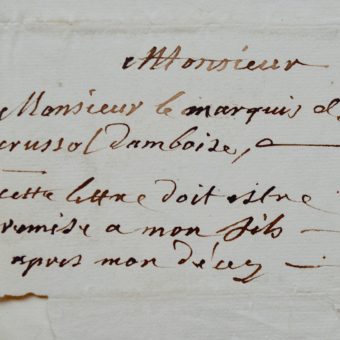 Monsieur
Monsieur le marquis de
crussol damboise,
cette lettre doit estre
remise a mon fils
apres mon décez